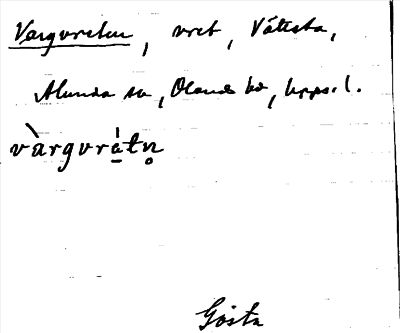 Vargvreten, vret, Vättsta,
Alunda sn, Oland hd, Upps. l.
vàrgvrá̱tn̥
Gösta